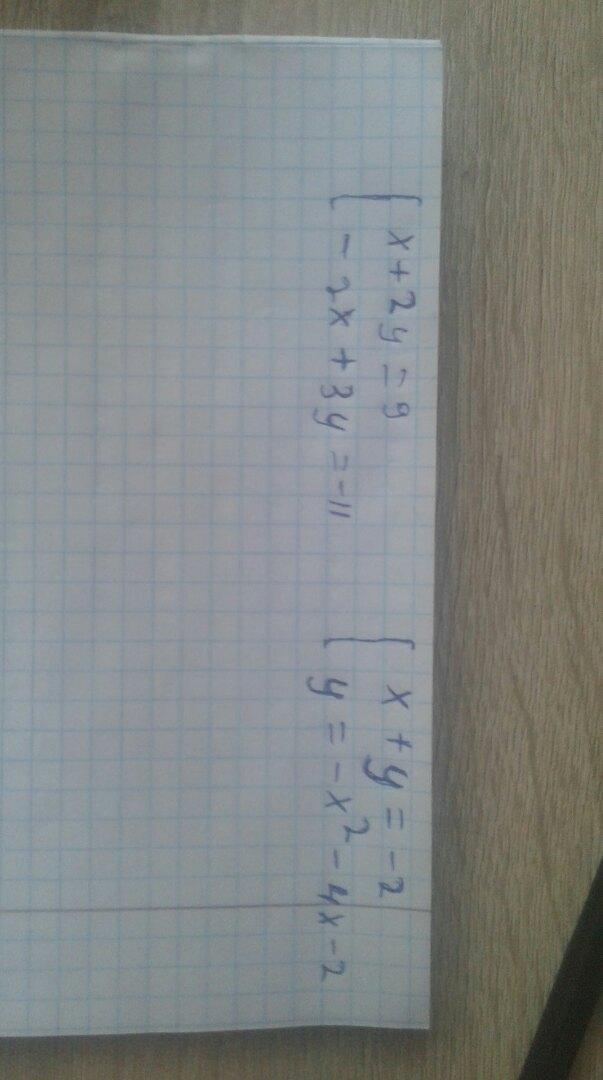 { x + 2y = 9
- 2x + 3y = -11
{ x + y = -2
y = -x² - 4x - 2